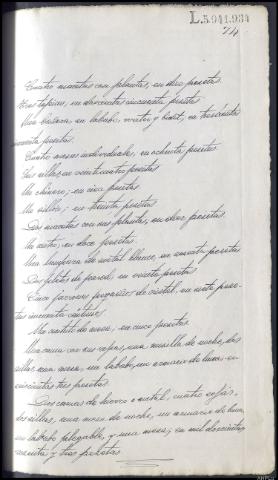 L.5.941.934
74
Cuatro macetas con plantas, en diez pesetas.
Tres tapices, en doscientas cincuenta pesetas
Una bañera, un lavabo, water y bidet, en trescientas
cincuenta pesetas.
Cuatro mesas individuales, en ochenta pesetas.
Seis sillas, en veinticuatro pesetas
Un chinero; en cien pesetas
Un sillón; en treinta pesetas
Dos macetas con sus plantas, en diez pesetas.
Un cesto; en doce pesetas.
Una lámpara de cristal blanco, en cuarenta pesetas
Dos platos de pared en veinte pesetas
Cinco jarrones pequeños de cristal, en siete pese-
tas cincuenta céntimos
Un centro de mesa, en cinco pesetas.
Una cama con sus ropas, una mesilla de noche, dos
sillas, una mesa, un lavabo, un armario de luna, en
cincuenta tres pesetas
Dos camas de hierro o metal, cuatro sillas,
dos sillas, una mesa de noche, un armario de luna,
un lavabo plegable, y una mesa; en mil doscientas
cuarenta y tres pesetas